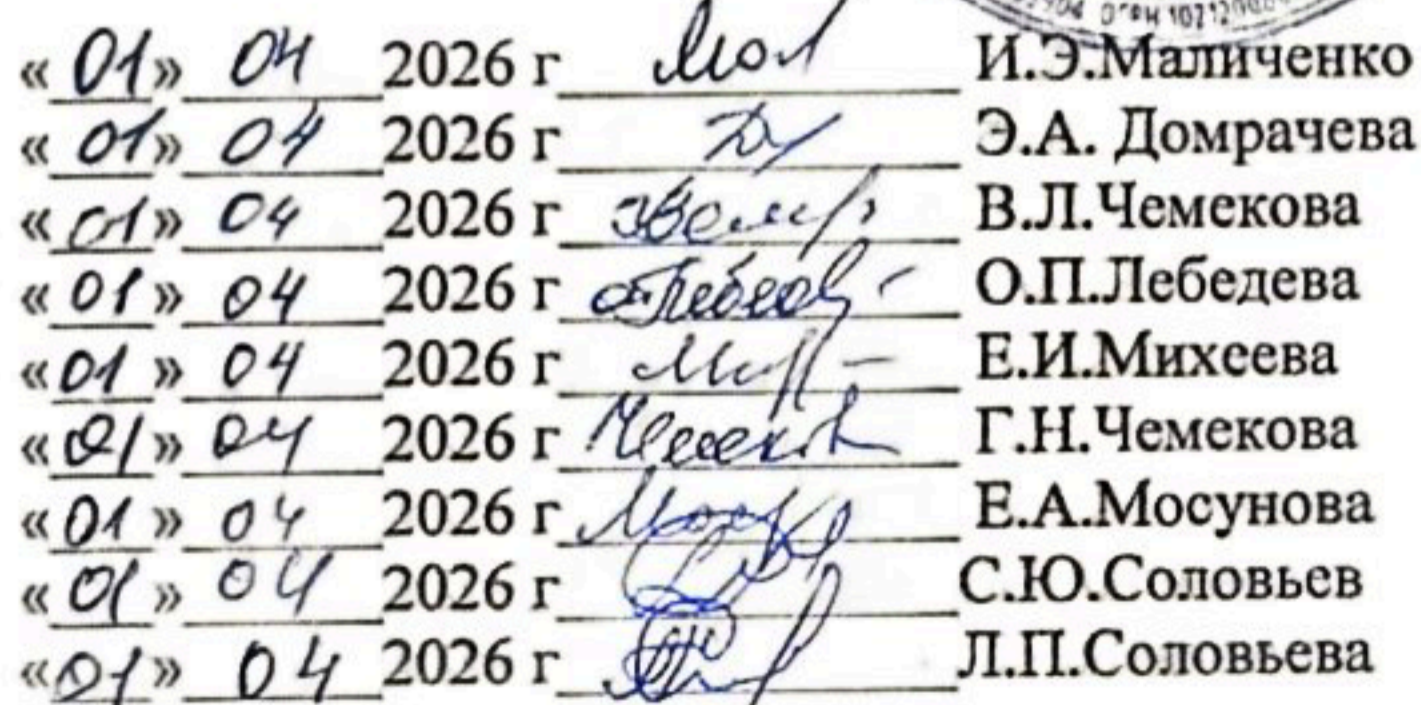 ОГРН 1021200
«01» 04 2026 г И.Э.Маличенко
«01» 04 2026 г Э.А. Домрачева
«01» 04 2026 г В.Л.Чемекова
«01» 04 2026 г О.П.Лебедева
«01» 04 2026 г Е.И.Михеева
«01» 04 2026 г Г.Н.Чемекова
«01» 04 2026 г Е.А.Мосунова
«01» 04 2026 г С.Ю.Соловьев
«01» 04 2026 г Л.П.Соловьева